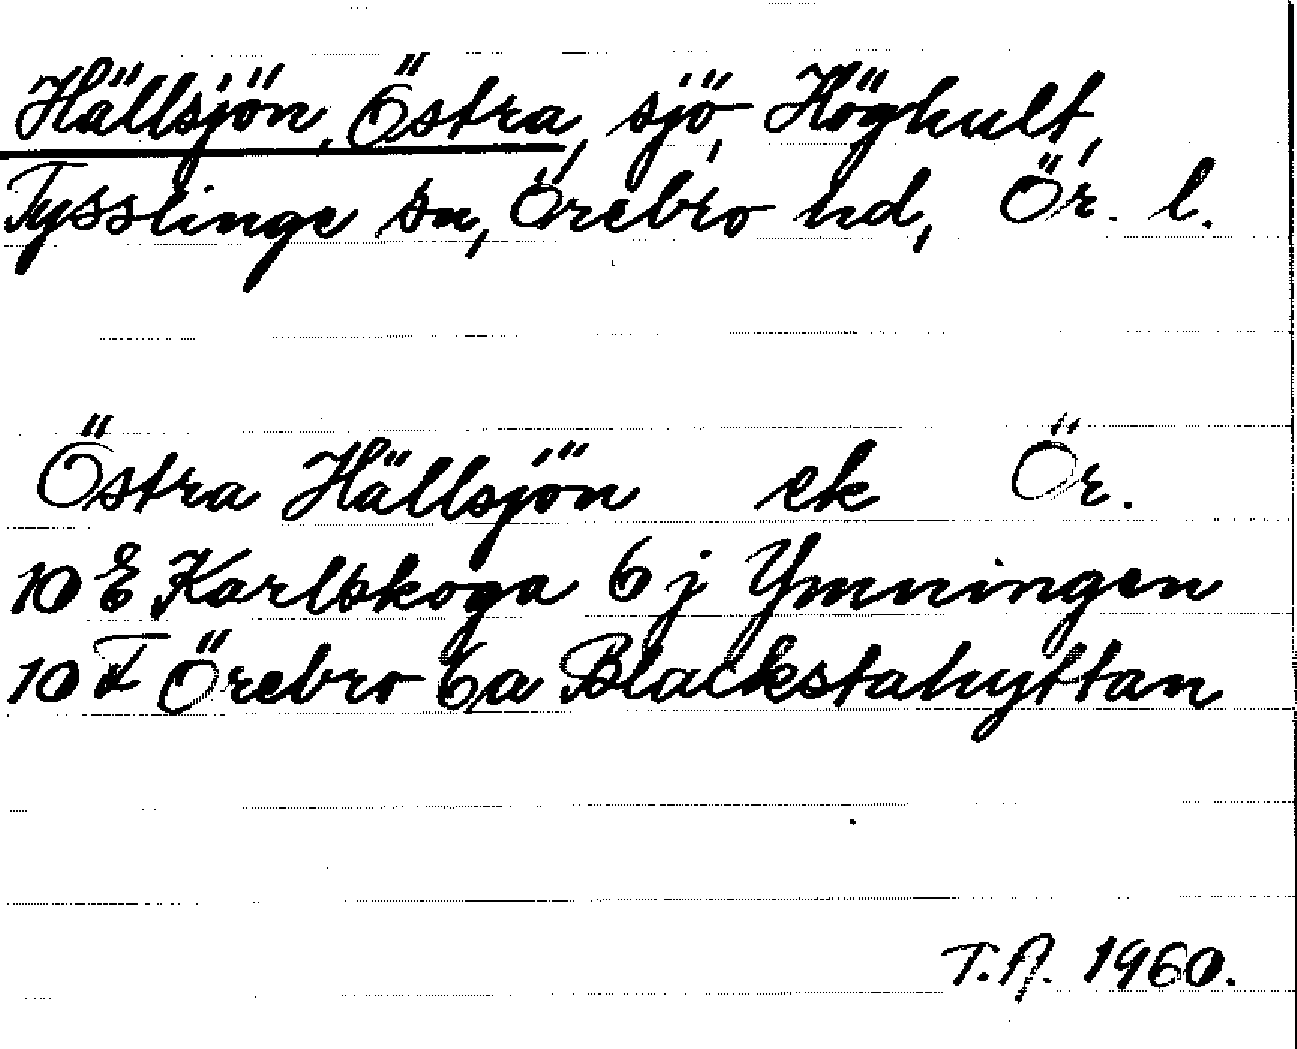 Hällsjön, Östra, sjö, Höghult,
Tysslinge sn, Örebro hd, Ör. l.
Östra Hällsjön ek Ör.
10 E Karlskoga 6 j Ymningen
10 F Örebro 6a Blackstahyttan
T.A. 1960.